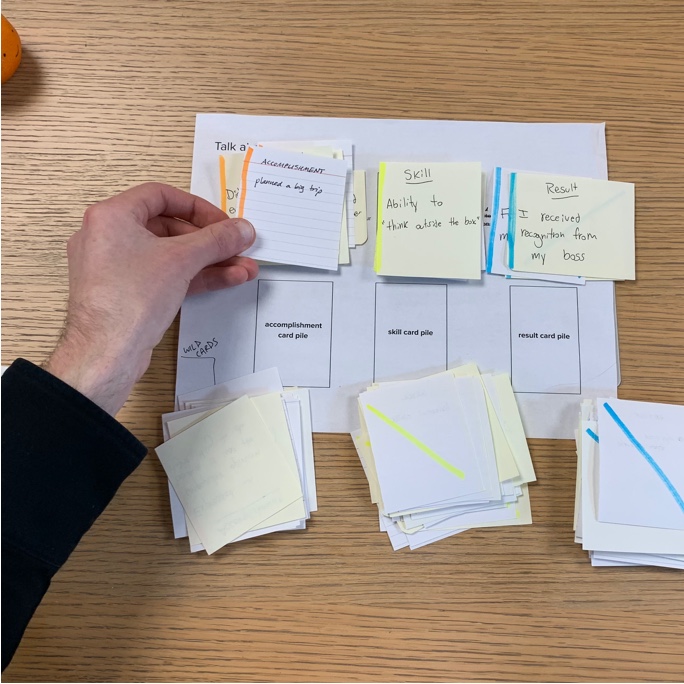 Talk
ACCOMPLISHMENT
planned a big trip
Skill
Ability to
"think outside the box"
Result
I received
recognition from
my boss
WILD
CARDS
accomplishment
card pile
skill card pile
result card pile